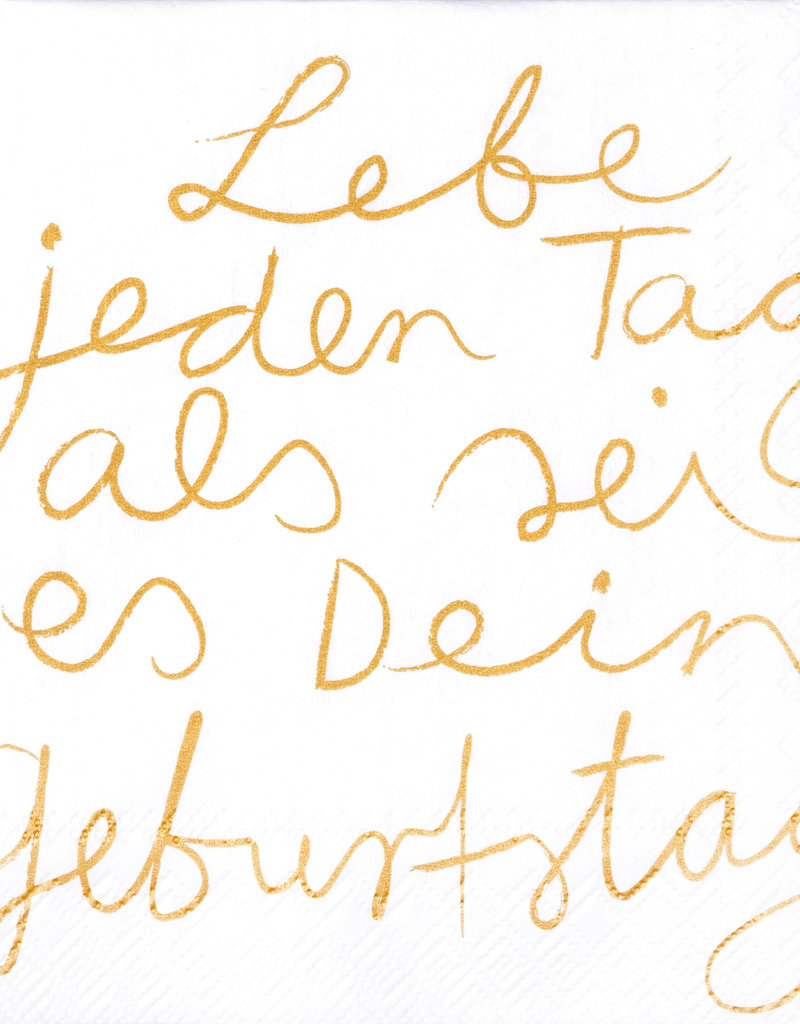 Lebe
jeden Tag
als sei
es Dein
geburtstag